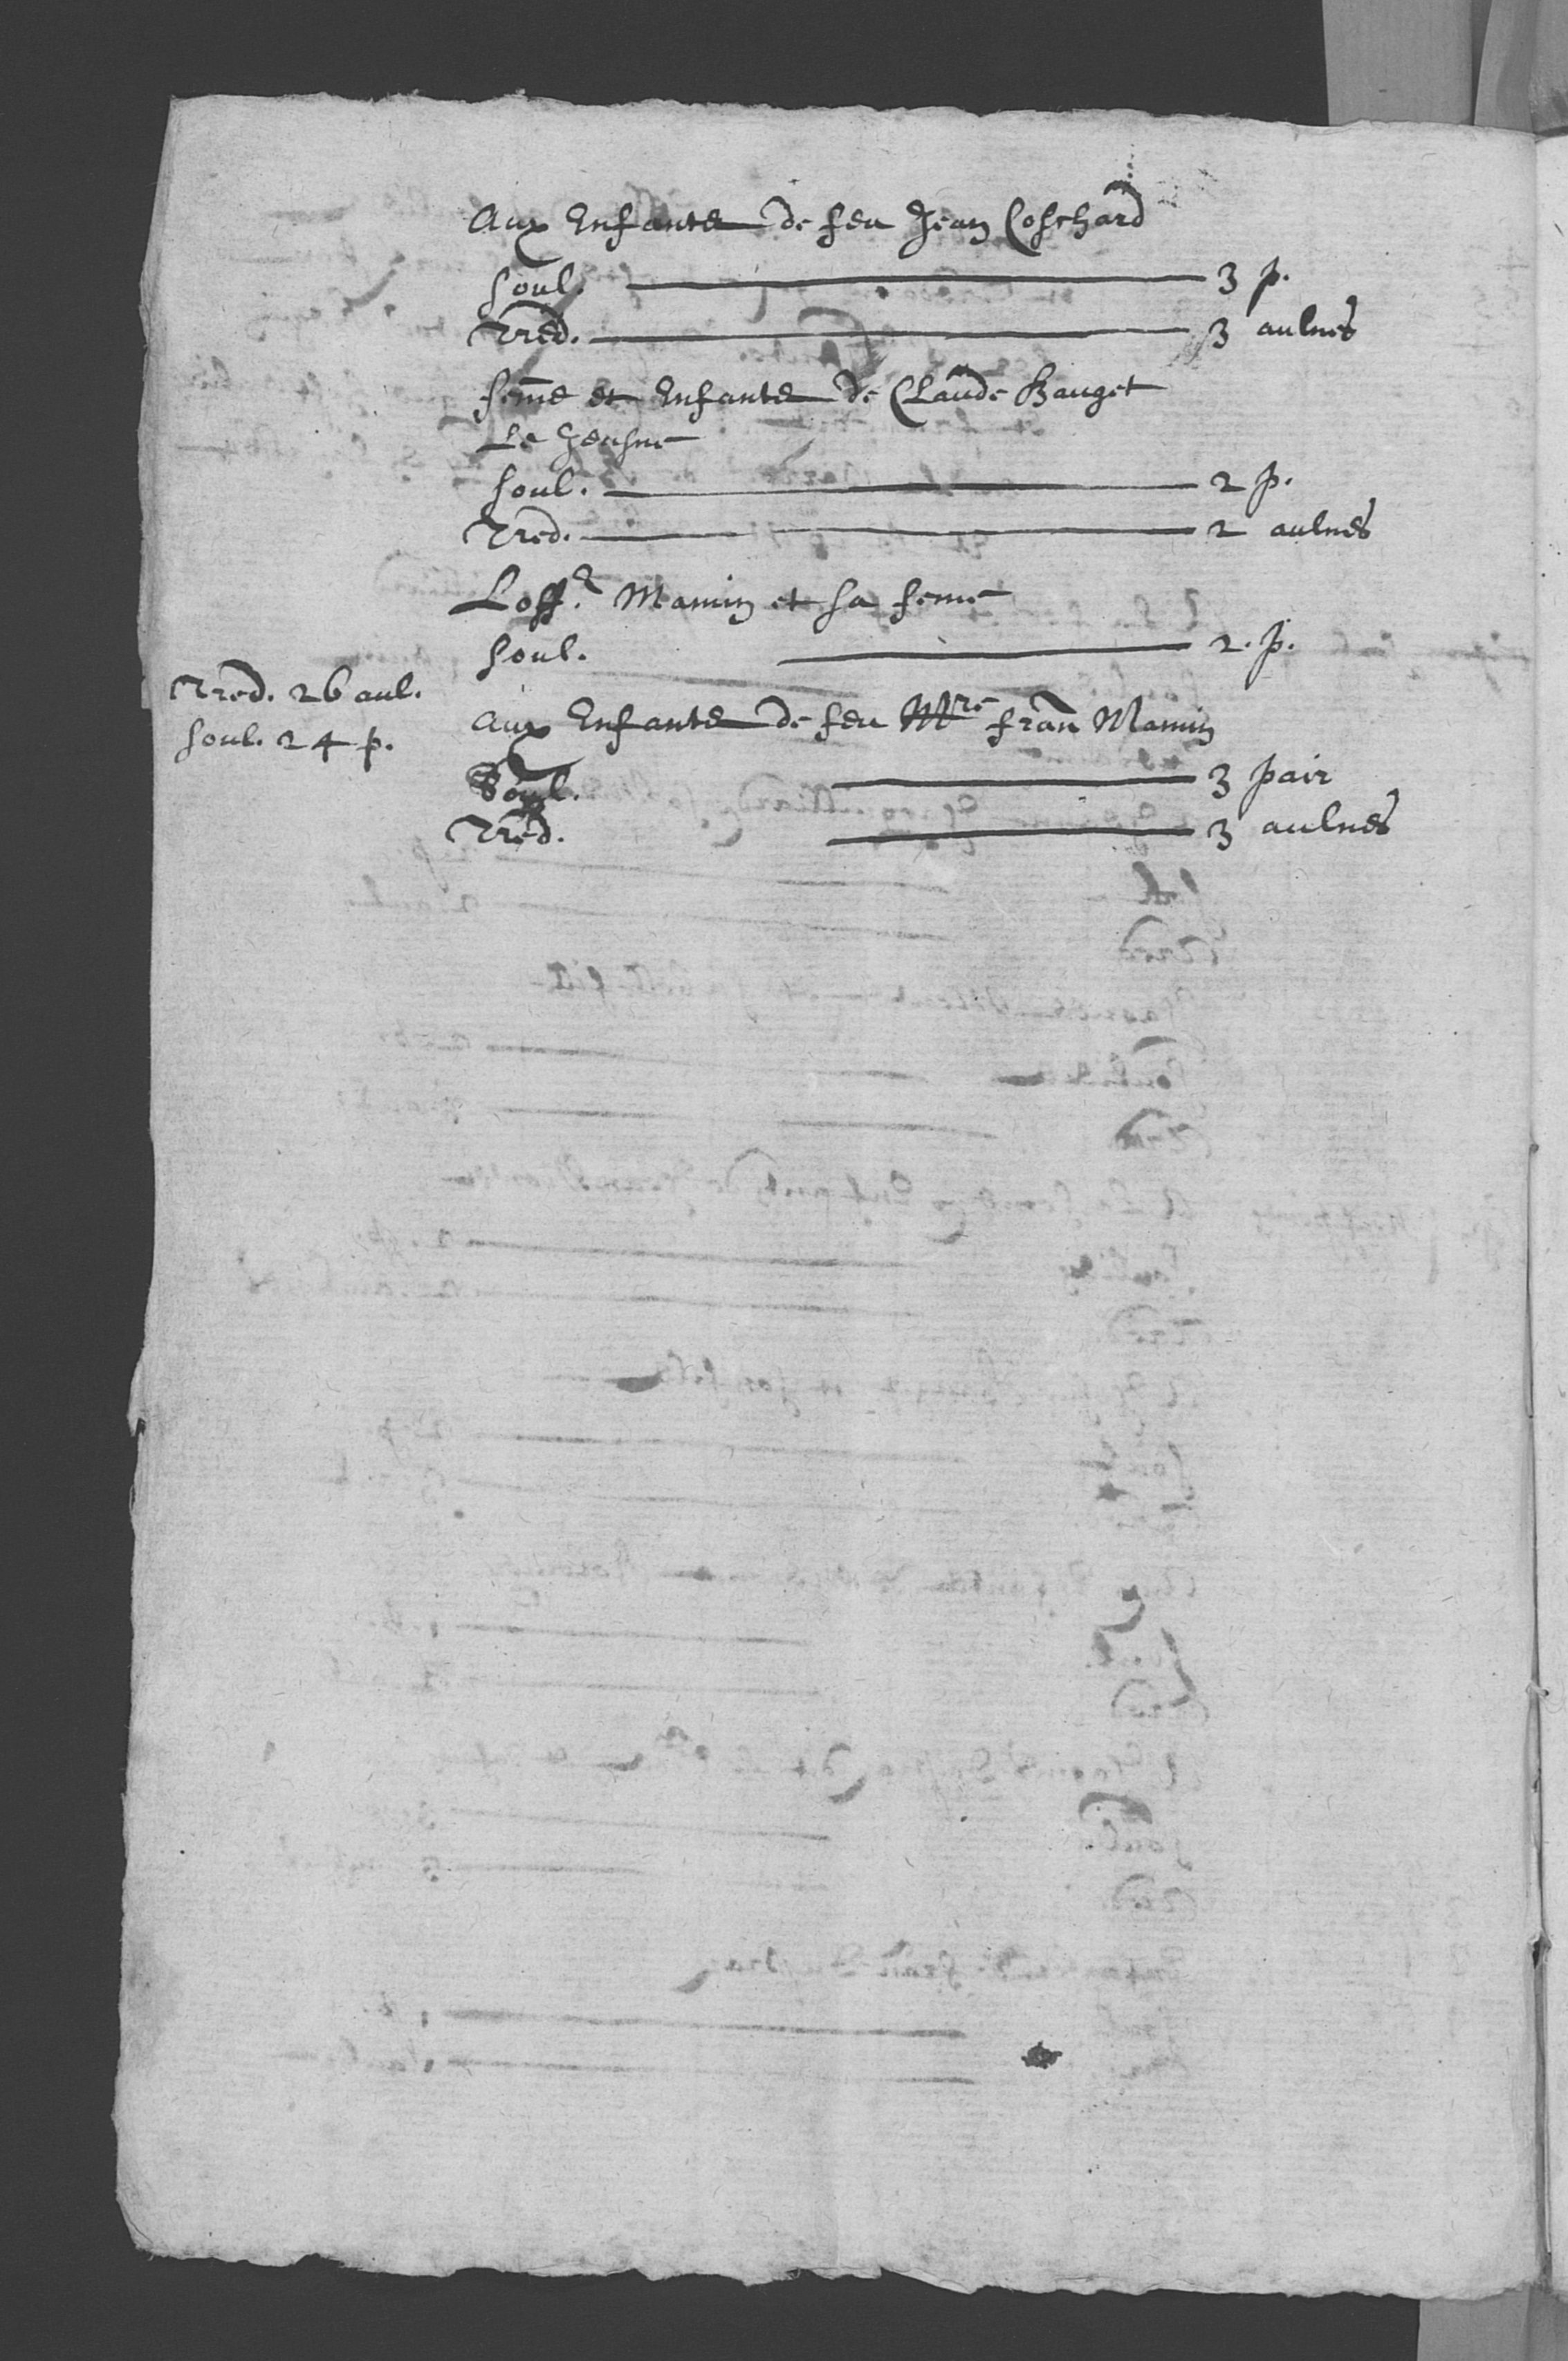 Aux Enfants de feu Jean Coschard
soul. 3 p.
Tred. 3 aulnes
feme et Enfants de Claude Bauget
Le Jeusne
soul. 2 p.
Tred. 2 aulnes
Loff.r Mamin et sa feme
soul. 2. p.
Tred. 26 aul.
soul. 24 p.
aux Enfants de feu Mre fran Mamin
Soul. 3 pair
Tred. 3 aulnes